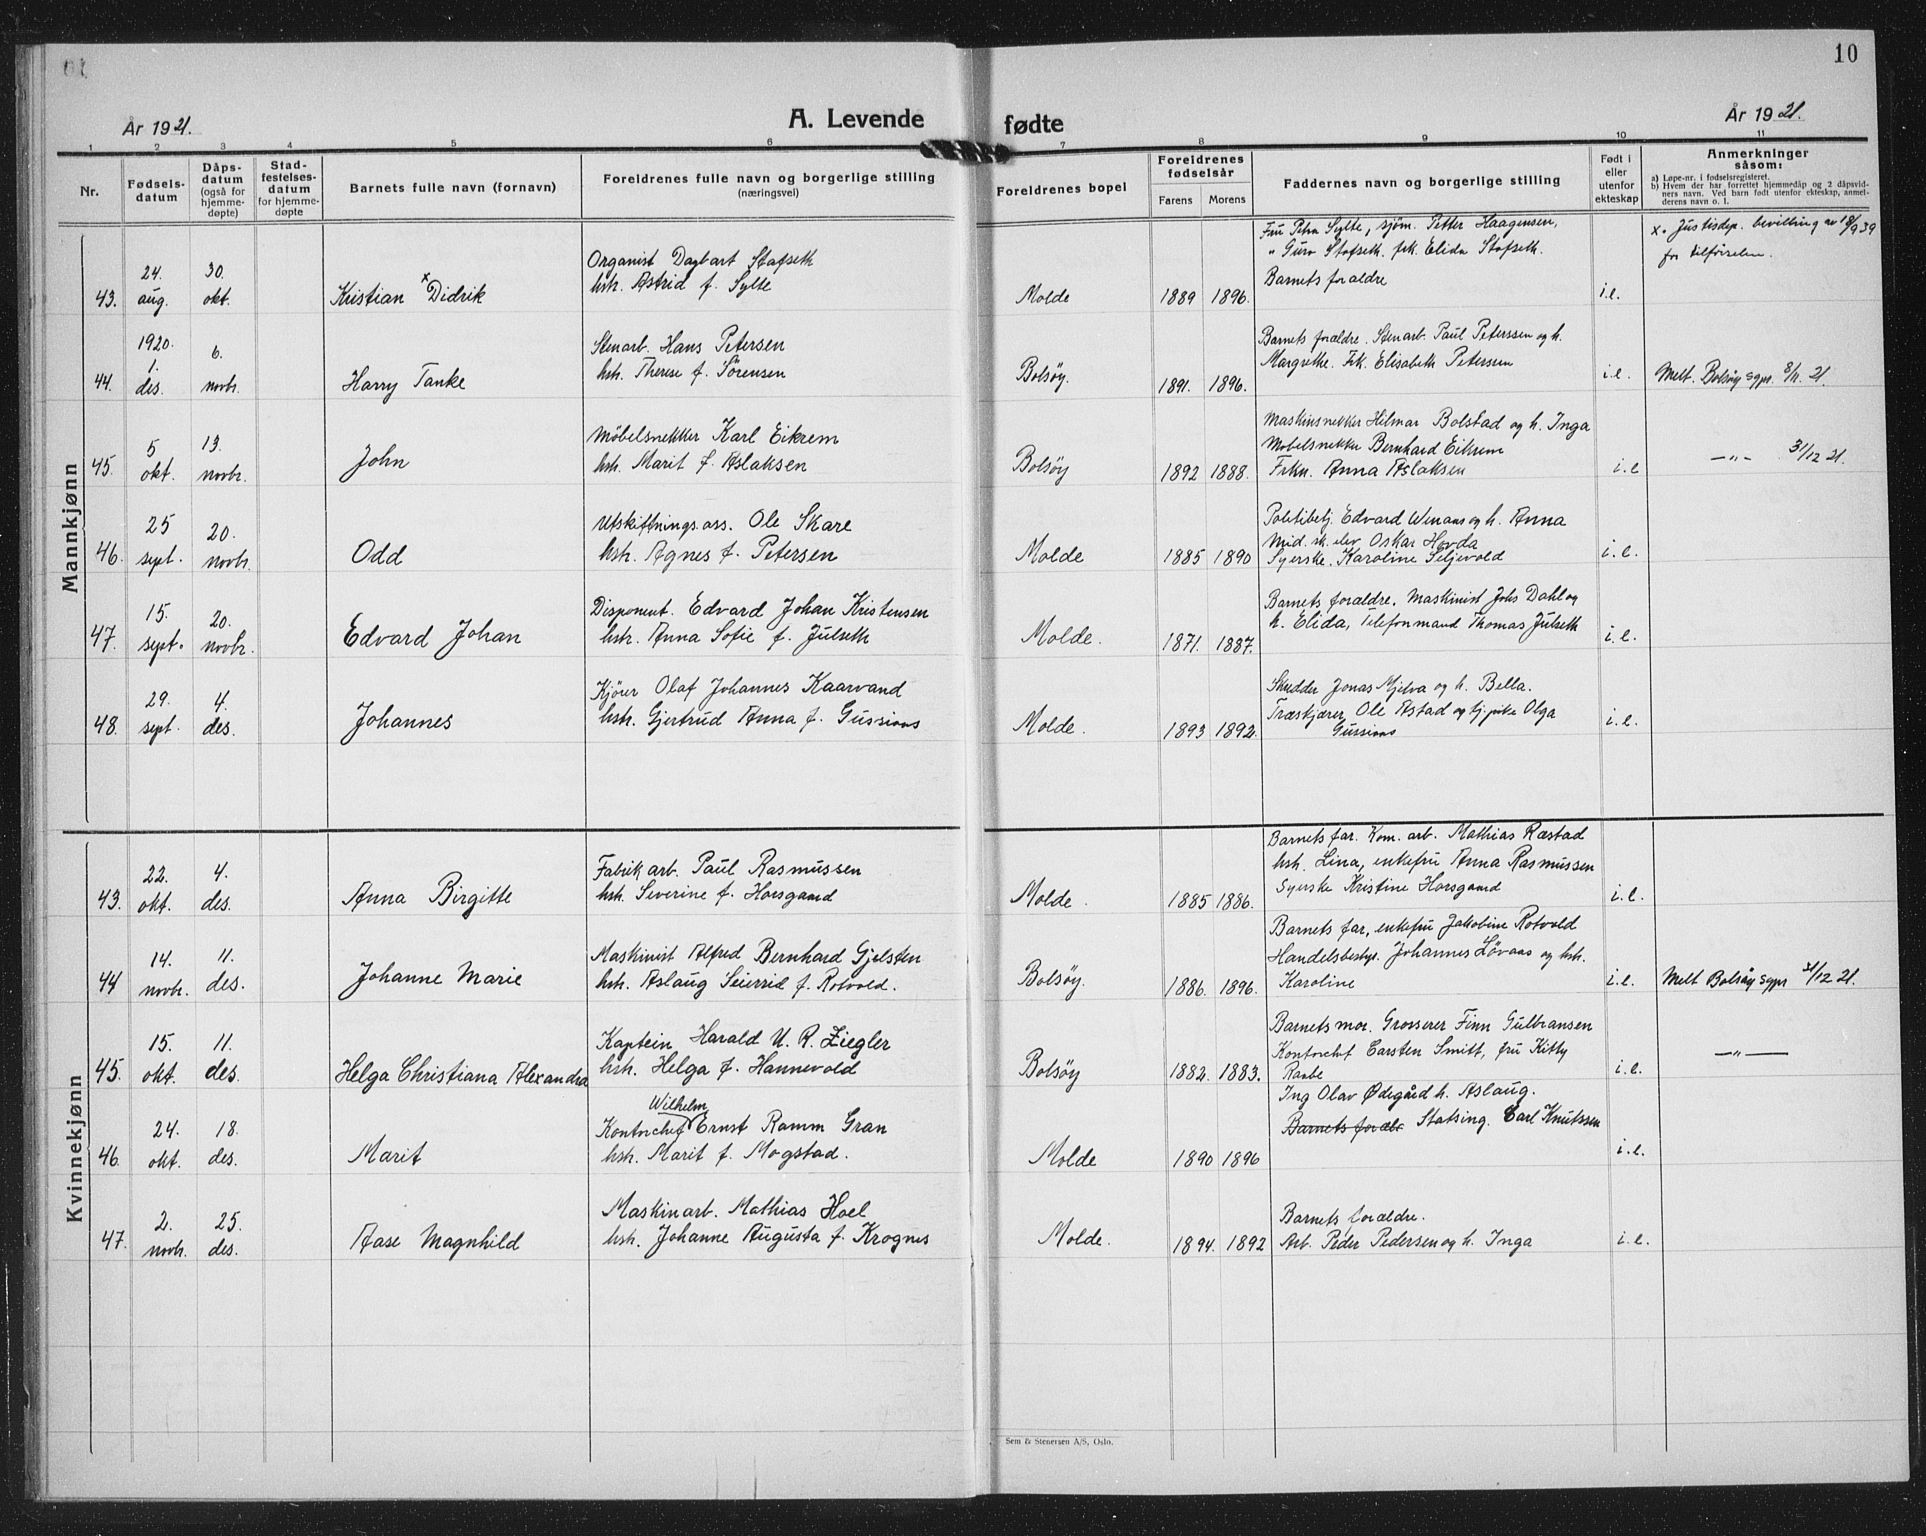 10
År 1921.
A. Levende fødte
År 1921.
1 2 3 4 5 6 7 8 9 10 11
Nr.
Fødsels-
datum
Dåps-
datum
(også for
hjemme-
døpte)
Stad-
festelses-
datum
for hjemme-
døpte
Barnets fulle navn (fornavn)
Foreldrenes fulle navn og borgerlige stilling
(næringsvei)
Foreldrenes bopel
Foreldrenes
fødselsår
Farens Morens
Faddernes navn og borgerlige stilling
Født i
eller
utenfor
ekteskap
Anmerkninger
såsom:
a) Løpe-nr. i fødselsregisteret.
b) Hvem der har forrettet hjemmedåp og 2 dåpsvid-
ners navn. Ved barn født utenfor ekteskap, anmel-
derens navn o. l.
Mannkjønn
43.
24.
aug.
30.
okt.
Kristian x Didrik
Organist Dagbart Stafseth
hst. Astrid f. Sylte
Molde
1889 1896.
Fru Petra Sylte, sjøm. Petter Haagensen,
" Guro Stafseth. frk. Elida Stafseth.
Barnets foraldre
i.e.
x. Justisdep. bevilling av 18/9 39
for tilføiselen.
44.
1920.
1.
des.
6.
novbr.
Harry Tanke
Stenarb. Hans Petersen
hst. Therese f. Sörensen
Bolsöy.
1891. 1896.
Barnets forældre. Stenarb. Paul Peterssen og h.
Margrethe. Frk. Elisabeth Peterssen
i.e.
Melt. Bolsöy sgpr. 8/11. 21.
45.
5
okt.
13.
novbr.
John
Møbelsnekker Karl Eikrem
hst. Marit f. Aslaksen
Bolsöy
1892 1888.
Maskinsnekker Hilmar Bolstad og h. Inga
Møbelsnekke Bernhard Eikrem
Frkn. Anna Aslaksen
i.e
—"— 31/12 21.
46.
25
sept.
20.
novbr.
Odd
Utskiftnings.ass. Ole Skare
hst. Agnes f. Petersen
Molde
1885 1890
Politibetj. Edvard Wenaas og h. Anna
Mid. sk. elev Oskar Hovda
Syerske. Karoline Seljevold
i.e.
47.
15.
sept.
20.
novbr.
Edvard Johan
Disponent. Edvard Johan Kristensen
hst. Anna Sofie f. Julseth
Molde.
1871. 1887.
Barnets forældre. Maskinist Johs Dahl og
h. Elida, Telefonmand Thomas Julseth
i.e.
48.
29.
sept.
4.
des.
Johannes
Kjörer Olaf Johannes Kaarvand
hst. Gjertrud Anna f. Gussiaas
Molde.
1893 1892.
Skredder Jonas Mjelva og h. Bella.
Træskjærer Ole Astad og Olga
Gussiaas
i.e.
Kvinnekjønn
43.
22.
okt.
4.
des.
Anna Birgitte
Fabrik arb. Paul Rasmussen
hst. Severine f. Horsgaard
Molde.
1885 1886.
Barnets far. Kom. arb. Mathias Ræstad
hst. Lina, enkefru Anna Rasmussen
Syerske Kristine Horsgaard
i.e.
44
14.
novbr.
11.
des.
Johanne Marie
Maskinist Alfred Bernhard Gjelsten
hst. Aslaug Seierrid f. Rotvold.
Bolsöy.
1886. 1896.
Barnets far, enkefru Jakobine Rotvold
Handelsbesty. Johannes Lövaas og hst.
Karoline
i.e.
Melt Bolsöy sgpr 31/12 21.
45.
15.
okt.
11.
des.
Helga Christiana Alexandra
Kaptein Harald U. R. Ziegler
hst. Helga f. Hannevold
Bolsöy
1882. 1883.
Barnets mor. Grosserer Finn Gulbransen
Kontorchef Carsten Smitt, fru Kitty
Raabe
i.e.
—"—
46.
24.
okt.
18.
des.
Marit
Wilhelm
Kontorchef Ernst Ramm Gran
hst. Marit f. Mogstad.
Molde
1890 1896
Ing Olav Ødegård h. Aslaug.
Barnets foræld Statsing. Carl Knutssen
i.e.
47.
2.
novbr.
25.
des.
Aase Magnhild
Maskinarb. Mathias Hoel
hst. Johanne Augusta f. Krognes
Molde.
1894. 1892
Barnets forældre.
Arb. Peder Pedersen og h. Inga
i.e.
Sem & Stenersen A/S, Oslo.